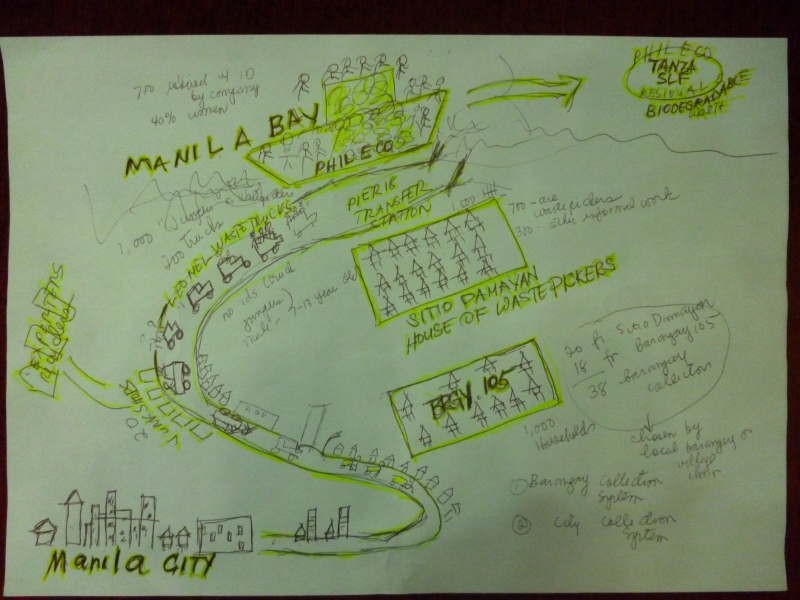 700 retired w ID
by company
40% women
MANILA BAY
PHILECOS
PHILECO
TANZA
SLF
RESIDUAL
BIODEGRADABLE
WASTE
PIER 18
TRANSFER
STATION
1,000 "Jumpers" wastepickers
200 Trucks
LEONEL WASTE TRUCKS
no ids (crude
jumpers)
male - 7-13 year old
1,500 HH
700 - are
wastepickers
300 - other informal work
SITIO DAMAYAN
HOUSE OF WASTEPICKERS
20 fr. Sitio Damayan
18 fr Barangay 105
38 barangay
collectors
chosen by
local barangay or
village
BRGY. 105
1,000
Households
20
JUNK SHOPS
① Barangay Collection
System
② City Collection
System
Manila CITY